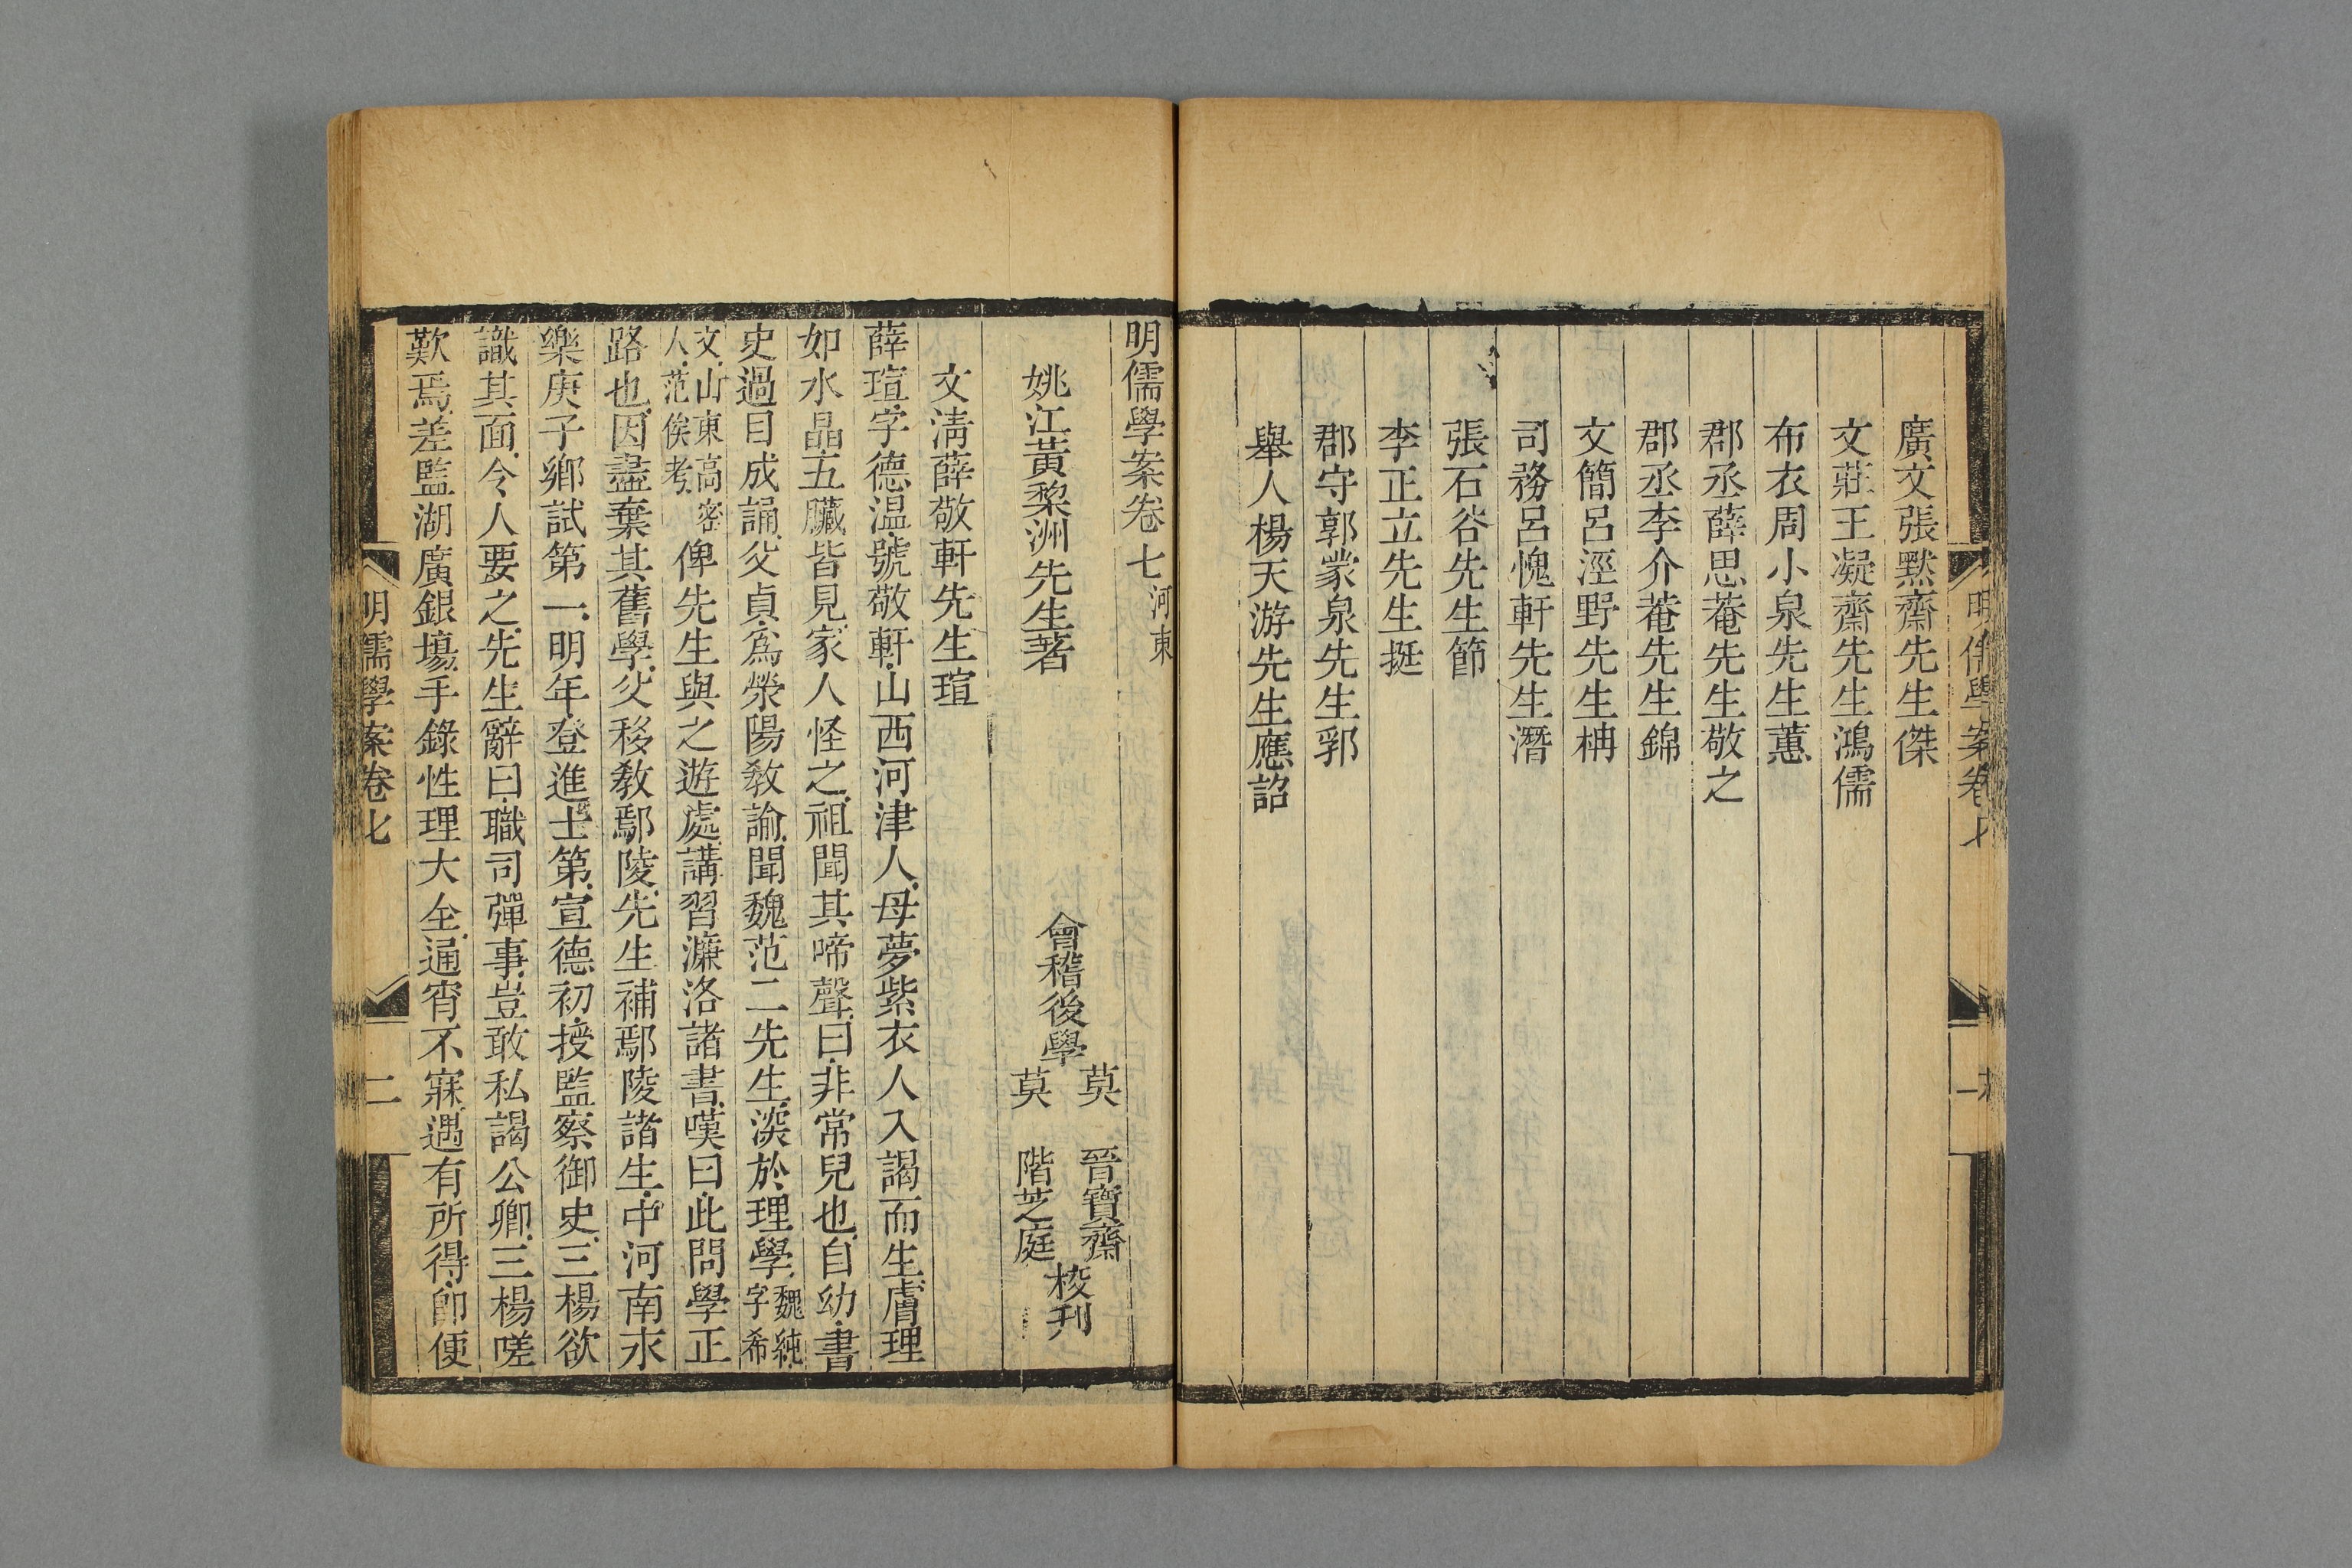 廣文張默齋先生傑
文莊王凝齋先生鴻儒
布衣周小泉先生蕙
郡丞薛思菴先生敬之
郡丞李介菴先生錦
文簡呂涇野先生柟
司務呂愧軒先生潛
張石谷先生節
李正立先生挺
郡守郭蒙泉先生郛
舉人楊天游先生應詔
明儒學案卷七河東
姚江黃棃洲先生著
會稽後學
莫晉寶齋
莫階芝庭
校刊
文清薛敬軒先生瑄
薛瑄字德温號敬軒山西河津人母夢紫衣人入謁而生膚理
如水晶五臟皆見家人怪之祖聞其啼聲曰非常兒也自幼書
史過目成誦父貞為滎陽教諭聞魏范二先生深於理學魏純字希
文山東高密人范俟考俾先生與之遊處講習濂洛諸書嘆曰此問學正
路也因盡棄其舊學父移教鄢陵先生補鄢陵諸生中河南永
樂庚子鄉試第一明年登進士第宣德初授監察御史三楊欲
識其面令人要之先生辭曰職司彈事豈敢私謁公卿三楊嗟
歎焉差監湖廣銀場手錄性理大全通宵不寐遇有所得即便
明儒學案卷七
二